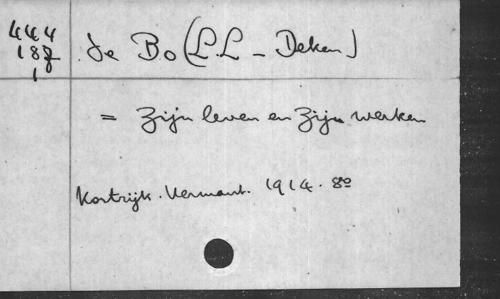 444
187
1
de Bo (L.L - Deken)
= Zijn leven en Zijn werken
Kortrijk. Vermaut. 1914. 8º